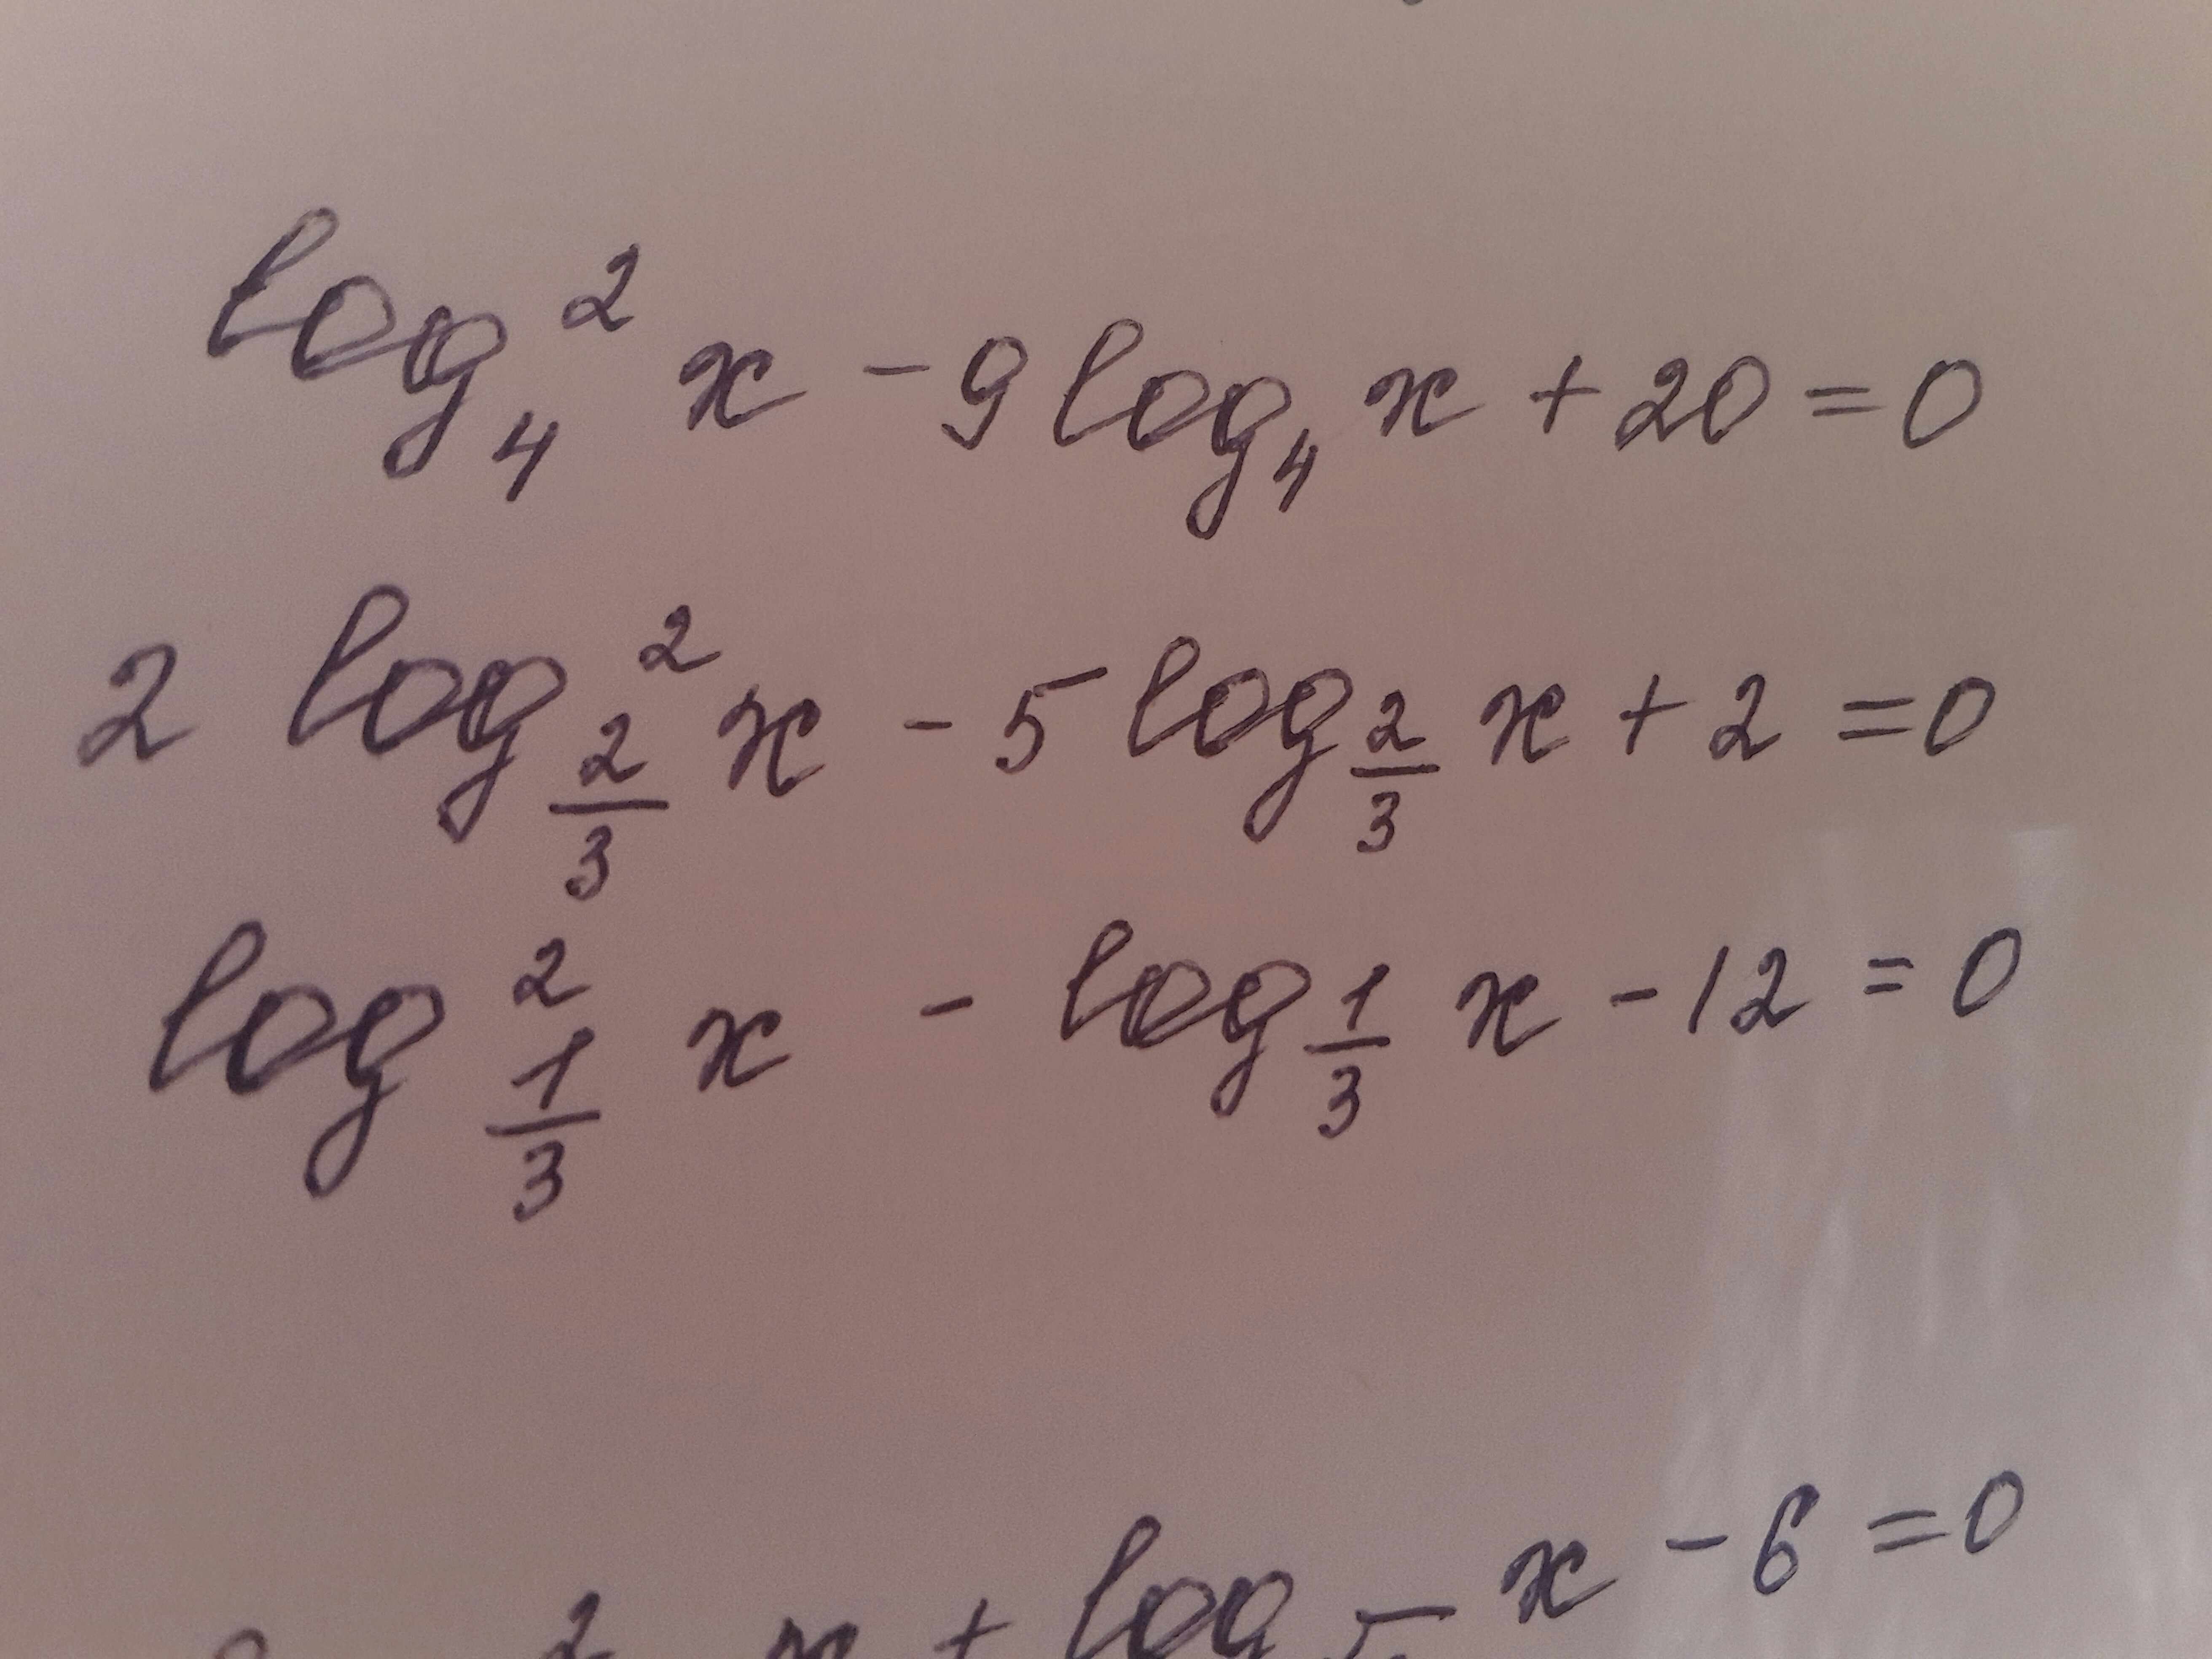 log₄² x - 9 log₄ x + 20 = 0
2 log²_{2/3} x - 5 log_{2/3} x + 2 = 0
log²_{1/3} x - log_{1/3} x - 12 = 0
2 x + log x - 6 = 0